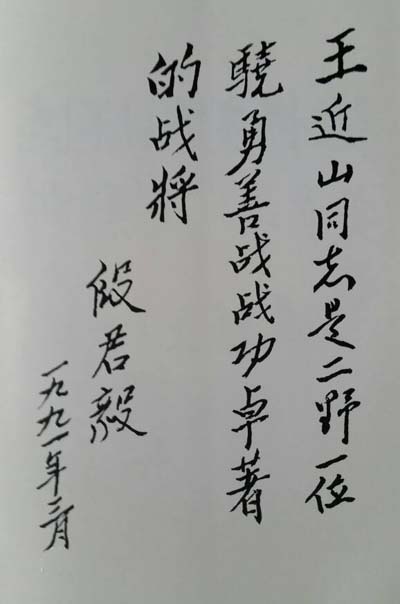 王近山同志是二野一位
驍勇善战战功卓著
的战將
段君毅
一九九一年二月